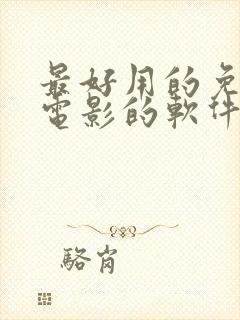 最好用的免
電影的軟件
駱肖